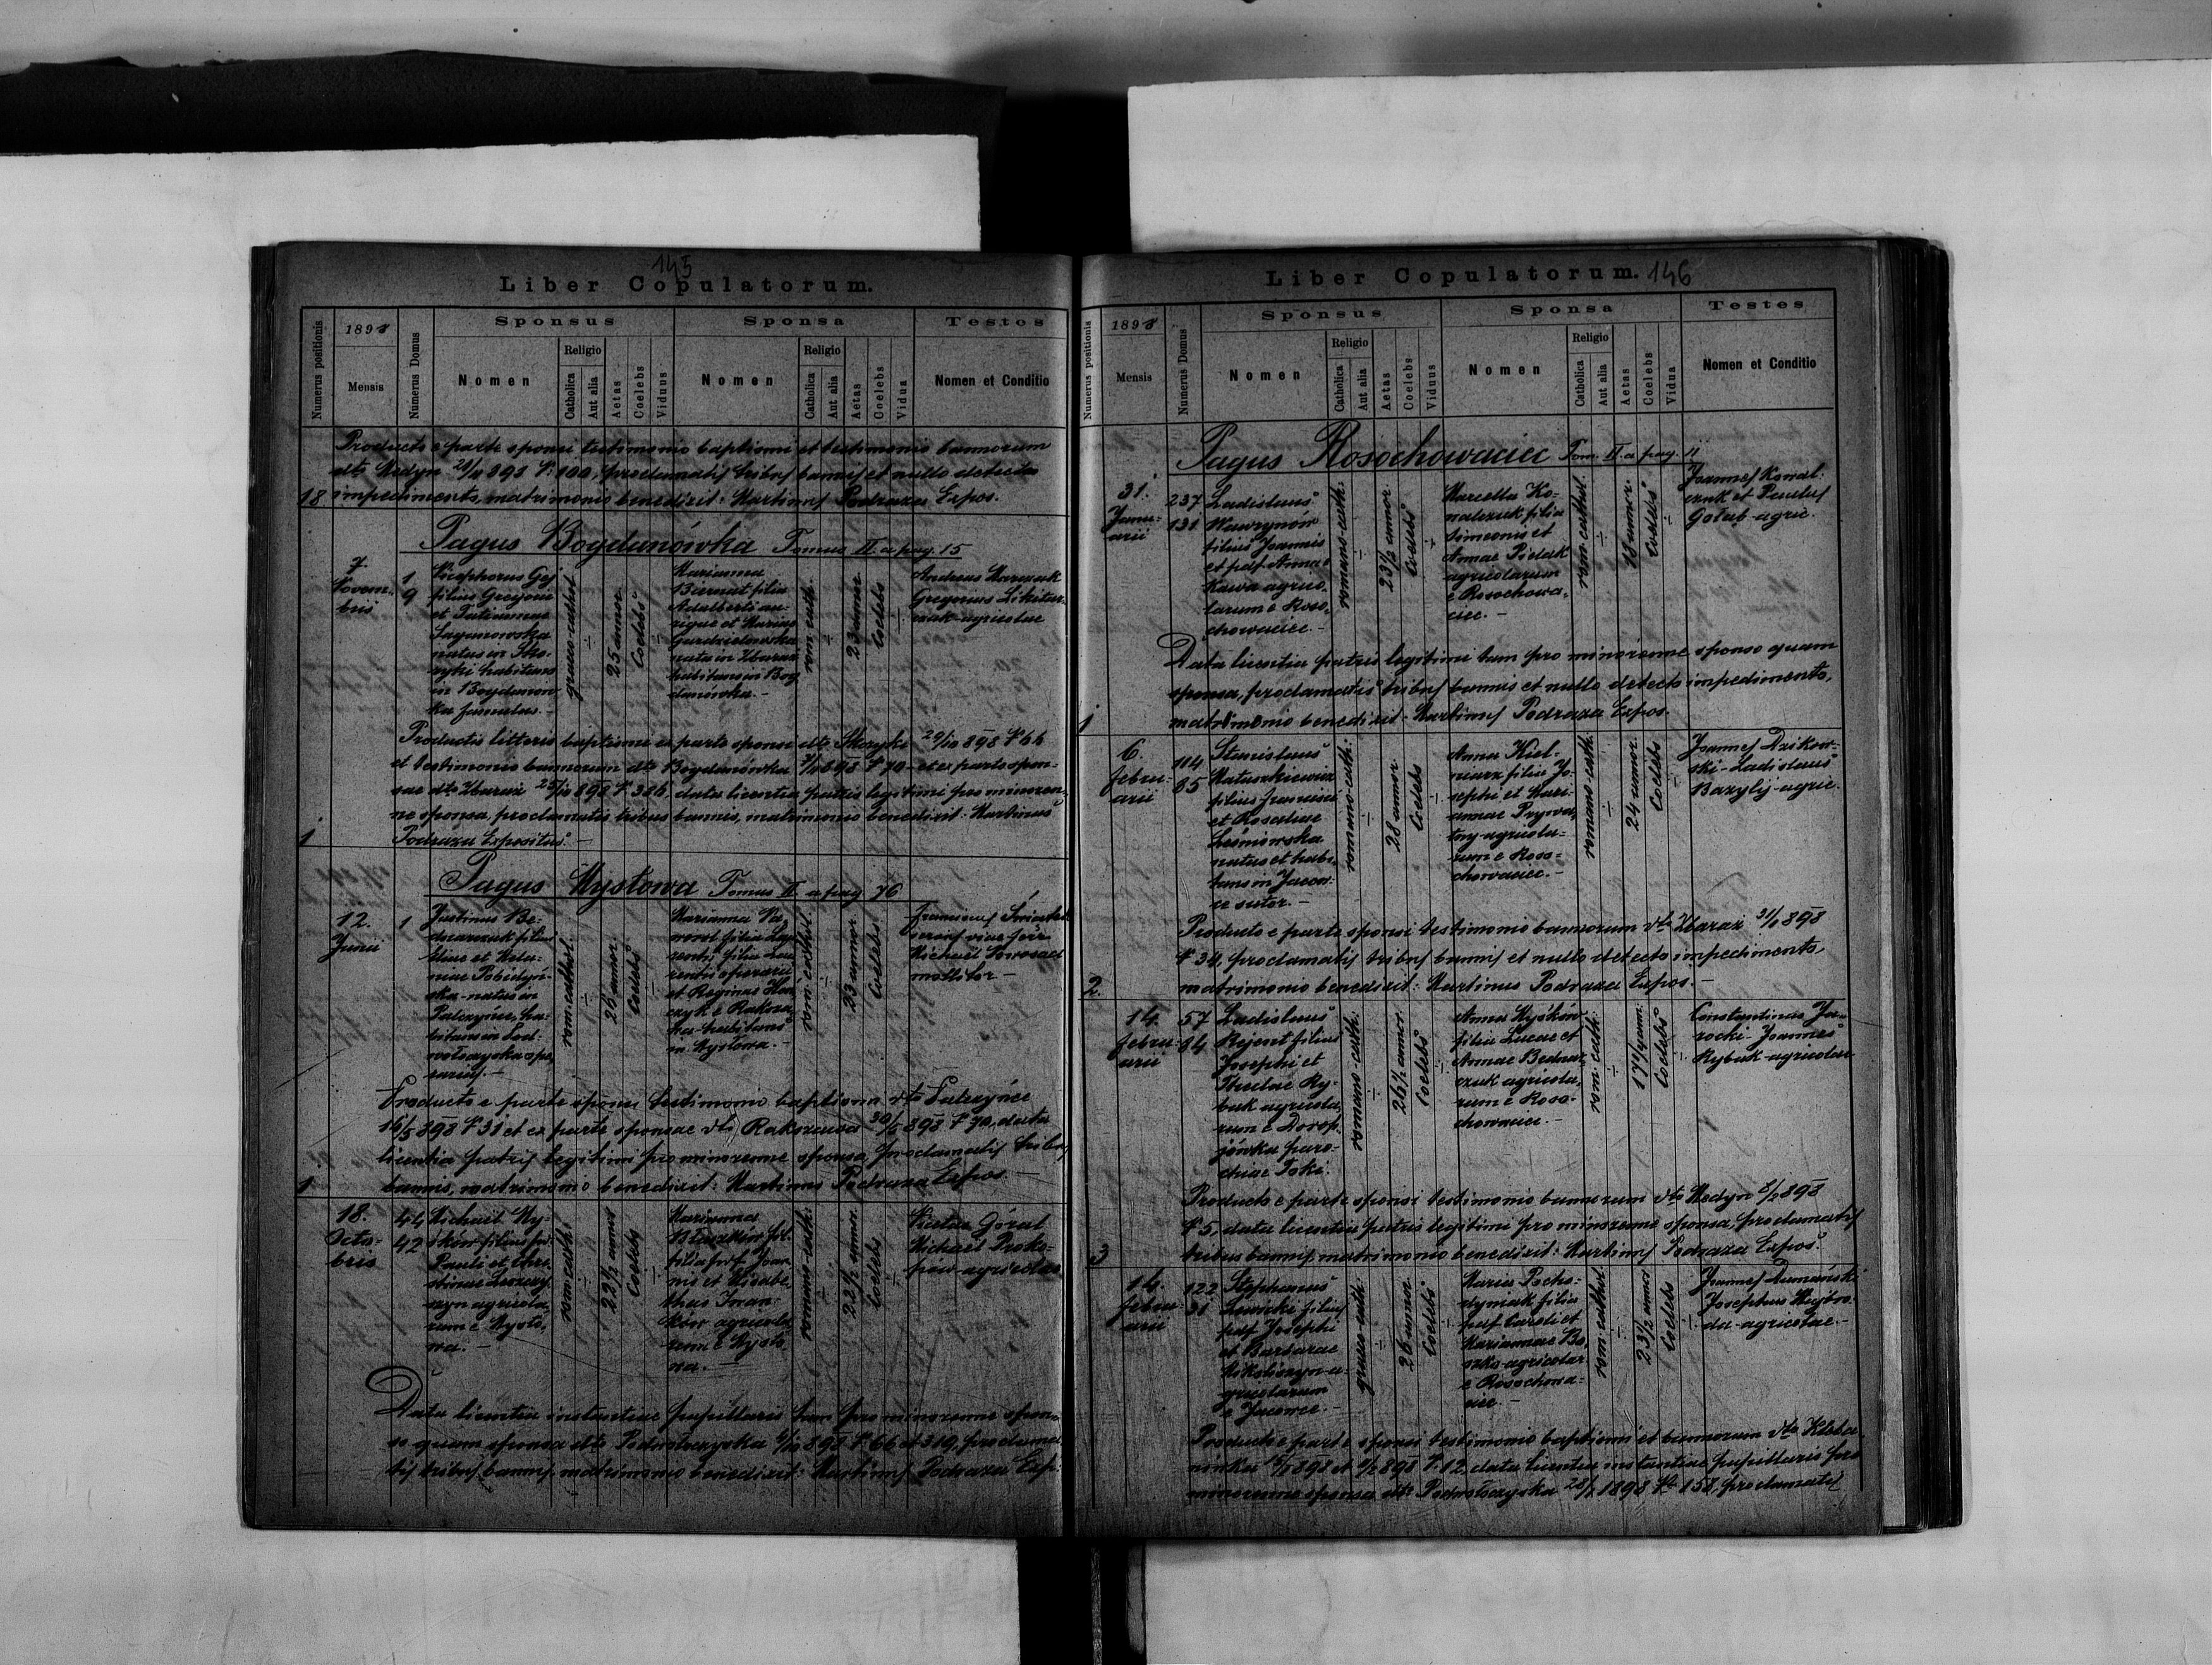 145
Liber Copulatorum.
Numerus positionis
1898
Mensis
Numerus Domus
Sponsus
Nomen
Religio
Catholica
Aut alia
Aetas
Coelebs
Viduus
Sponsa
Nomen
Religio
Catholica
Aut alia
Aetas
Coelebs
Vidua
Testes
Nomen et Conditio
Producto e parte sponsi testimonio baptismi et testimonio bannorum
dto Medyn 898 100, proclamatis tribus bannis et nullo detecto
18 impedimento, matrimonio benedixit: Martinus Podraza Expos.
Pagus Bogdanówka Tomus II a pag. 15
7.
Novem-
bris
1
9
Nicephorus Gej
filius Gregorii
et Tatiannae
natus in Sko-
ryki habitans
in Bogdanów-
ka famulus.
graeco-cathol.
25 annor.
Coelebs
Marianna
Biernat filia
Adalberti au-
rigae et Mariae
nata in Zbaraż
habitans in Bog
danówka.
rom. cath.
23 annor.
Coelebs
Andreas
Gregorius
agricolae
Productis litteris baptismi ex parte sponsi dto Skoryki 29/10 898 66
et testimonio bannorum dto Bogdanówka 898 70 et ex parte spon-
sae dto Zbaraż 898 386, data licentia patris legitimi pro minoren-
ne sponsa, proclamatis tribus bannis, matrimonio benedixit: Martinus
1 Podraza Expositus.
Pagus Mysłowa Tomus II a pag 76
12.
Junii
1
Justinus Be-
dnarczuk filius
Eliae et Mela-
niae
natus in
Palczyńce, ha-
bitans in Pod-
wołoczyska ope-
rarius.
rom. cathol.
26 annor.
Coelebs
Marianna
filia Lau-
rentii filia Lau-
rentii operarii
et Reginae
habitans
in Mysłowa.
rom. cathol.
23 annor
Coelebs
Franciscus
viae ferr.
Michael
molitor
Producto e parte sponsi testimonio baptismi dto Palczyńce
16/5 898 31 et ex parte sponsae dto 30/5 898 70, data
licentia patris legitimi pro minorenne sponsa, proclamatis tribus
1 bannis, matrimonio benedixit: Martinus Podraza Expos.
18.
Octo-
bris
44
42
Michael My-
śków filius pdf.
Pauli et Chri-
stinae
agricola-
rum e Mysło-
wa.
rom. cath.
22 1/2 annor
Coelebs
Marianna
filia pdf. Joan-
nis et Elisabe-
thae Iwan-
ków agricola-
rum e Mysło-
wa.
romano-cath.
22 1/2 annor.
Coelebs
Nicolaus Góral
Michael Proko-
pów agricolae
Data licentia instantiae pupillaris tam pro minorenne spon-
so quam sponsa dto Podwołoczyska 898 66 et 319, proclama-
tis tribus bannis, matrimonio benedixit: Martinus Podraza Exp.
Liber Copulatorum. 146
Numerus positionis
1898
Mensis
Numerus Domus
Sponsus
Nomen
Religio
Catholica
Aut alia
Aetas
Coelebs
Viduus
Sponsa
Nomen
Religio
Catholica
Aut alia
Aetas
Coelebs
Vidua
Testes
Nomen et Conditio
Pagus Rosochowaciec Tom. II a pag. 11
31.
Janu-
arii
237
131
Ladislaus
Wawrynów
filius Joannis
et pdf. Annae
Kawa agrico-
larum e Roso-
chowaciec.
romano-cath.
23 1/2 annor.
Coelebs
Marcella Ko-
walczuk filia
Simeonis et
Annae
agricolarum
e Rosochowa-
ciec.
rom. cathol.
18 annor.
Coelebs
Joannes Kowal-
czuk et Paulus
Gołub agric.
Data licentia patris legitimi tam pro minorenne sponso quam
sponsa, proclamatis tribus bannis et nullo detecto impedimento,
1 matrimonio benedixit: Martinus Podraza Expos.
6.
febru-
arii
114
85
Stanislaus
Matuszkiewicz
filius Francisci
et Rosaliae
Leśniowska
natus et habi-
tans in Jacow-
ce sutor.
romano-cath.
28 annor.
Coelebs
Anna Kiel-
narz filia Jo-
sephi et Mari-
annae
agricola-
rum e Roso-
chowaciec.
romano-cath.
24 annor.
Coelebs
Joannes Dzikow-
ski Ladislaus
Bazylij agric.
Producto e parte sponsi testimonio bannorum dto Zbaraż 31/1 898
34, proclamatis tribus bannis et nullo detecto impedimento,
2. matrimonio benedixit: Martinus Podraza Expos.
14.
febru-
arii
57
94
Ladislaus
Rejent filius
Josephi et
Theclae Ry-
bak agricola-
rum e Dorof-
jówka paro-
chiae Toki.
romano-cath.
26 1/2 annor.
Coelebs
Anna Myśków
filia Lucae et
Annae Bednar-
czuk agricola-
rum e Roso-
chowaciec.
rom. cath.
Coelebs
Constantinus Ja-
rocki Joannes
Rybak agricolae
Producto e parte sponsi testimonio bannorum dto Medyn 898
5, data licentia patris legitimi pro minorenne sponsa, proclamatis
3 tribus bannis, matrimonio benedixit: Martinus Podraza Expos.
14.
febru-
arii
122
31
Stephanus
Lewicki filius
pdf. Josephi
et Barbarae
a-
gricolarum
e Jacowce.
graeco-cath.
26 annor.
Coelebs
Maria Pocho-
dyniak filia
pdf. Caroli et
Mariannae Bo-
agricolar.
e Rosochowa-
ciec.
rom. cathol.
23 1/2 annor
Coelebs
Joannes Dumański
Josephus
agricolae
Producto e parte sponsi testimonio baptismi et bannorum dto Kleba-
nówka 898 et 898 12, data licentia instantiae pupillaris pro
minorenne sponsa dto Podwołoczyska 28/1 1898 158, proclamatis